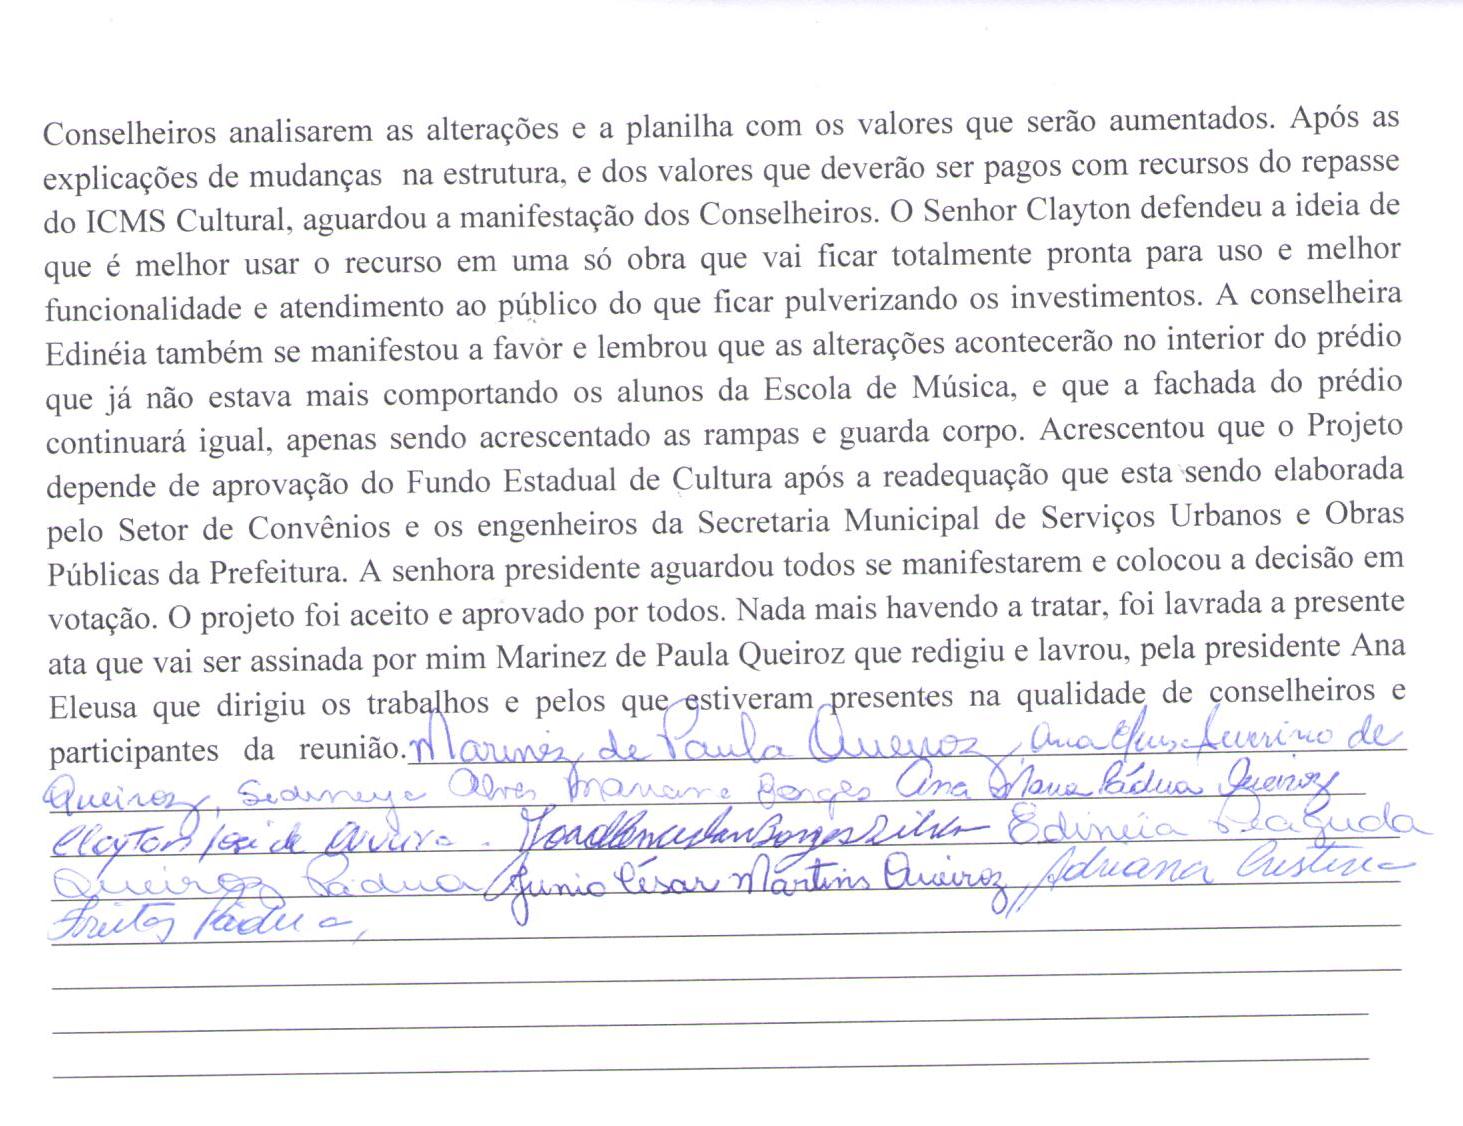 Conselheiros analisarem as alterações e a planilha com os valores que serão aumentados. Após as
explicações de mudanças na estrutura, e dos valores que deverão ser pagos com recursos do repasse
do ICMS Cultural, aguardou a manifestação dos Conselheiros. O Senhor Clayton defendeu a ideia de
que é melhor usar o recurso em uma só obra que vai ficar totalmente pronta para uso e melhor
funcionalidade e atendimento ao público do que ficar pulverizando os investimentos. A conselheira
Edinéia também se manifestou a favor e lembrou que as alterações acontecerão no interior do prédio
que já não estava mais comportando os alunos da Escola de Música, e que a fachada do prédio
continuará igual, apenas sendo acrescentado as rampas e guarda corpo. Acrescentou que o Projeto
depende de aprovação do Fundo Estadual de Cultura após a readequação que esta sendo elaborada
pelo Setor de Convênios e os engenheiros da Secretaria Municipal de Serviços Urbanos e Obras
Públicas da Prefeitura. A senhora presidente aguardou todos se manifestarem e colocou a decisão em
votação. O projeto foi aceito e aprovado por todos. Nada mais havendo a tratar, foi lavrada a presente
ata que vai ser assinada por mim Marinez de Paula Queiroz que redigiu e lavrou, pela presidente Ana
Eleusa que dirigiu os trabalhos e pelos que estiveram presentes na qualidade de conselheiros e
participantes da reunião. Marinez de Paula Queiroz, Ana Severino de
Queiroz, Alves Mariana Borges Ana Maria Pádua Queiroz
Clayton José de Borges Silva Edinéia
Queiroz Pádua Junio César Martins Queiroz, Adriana Cristina
Freitas Pádua,